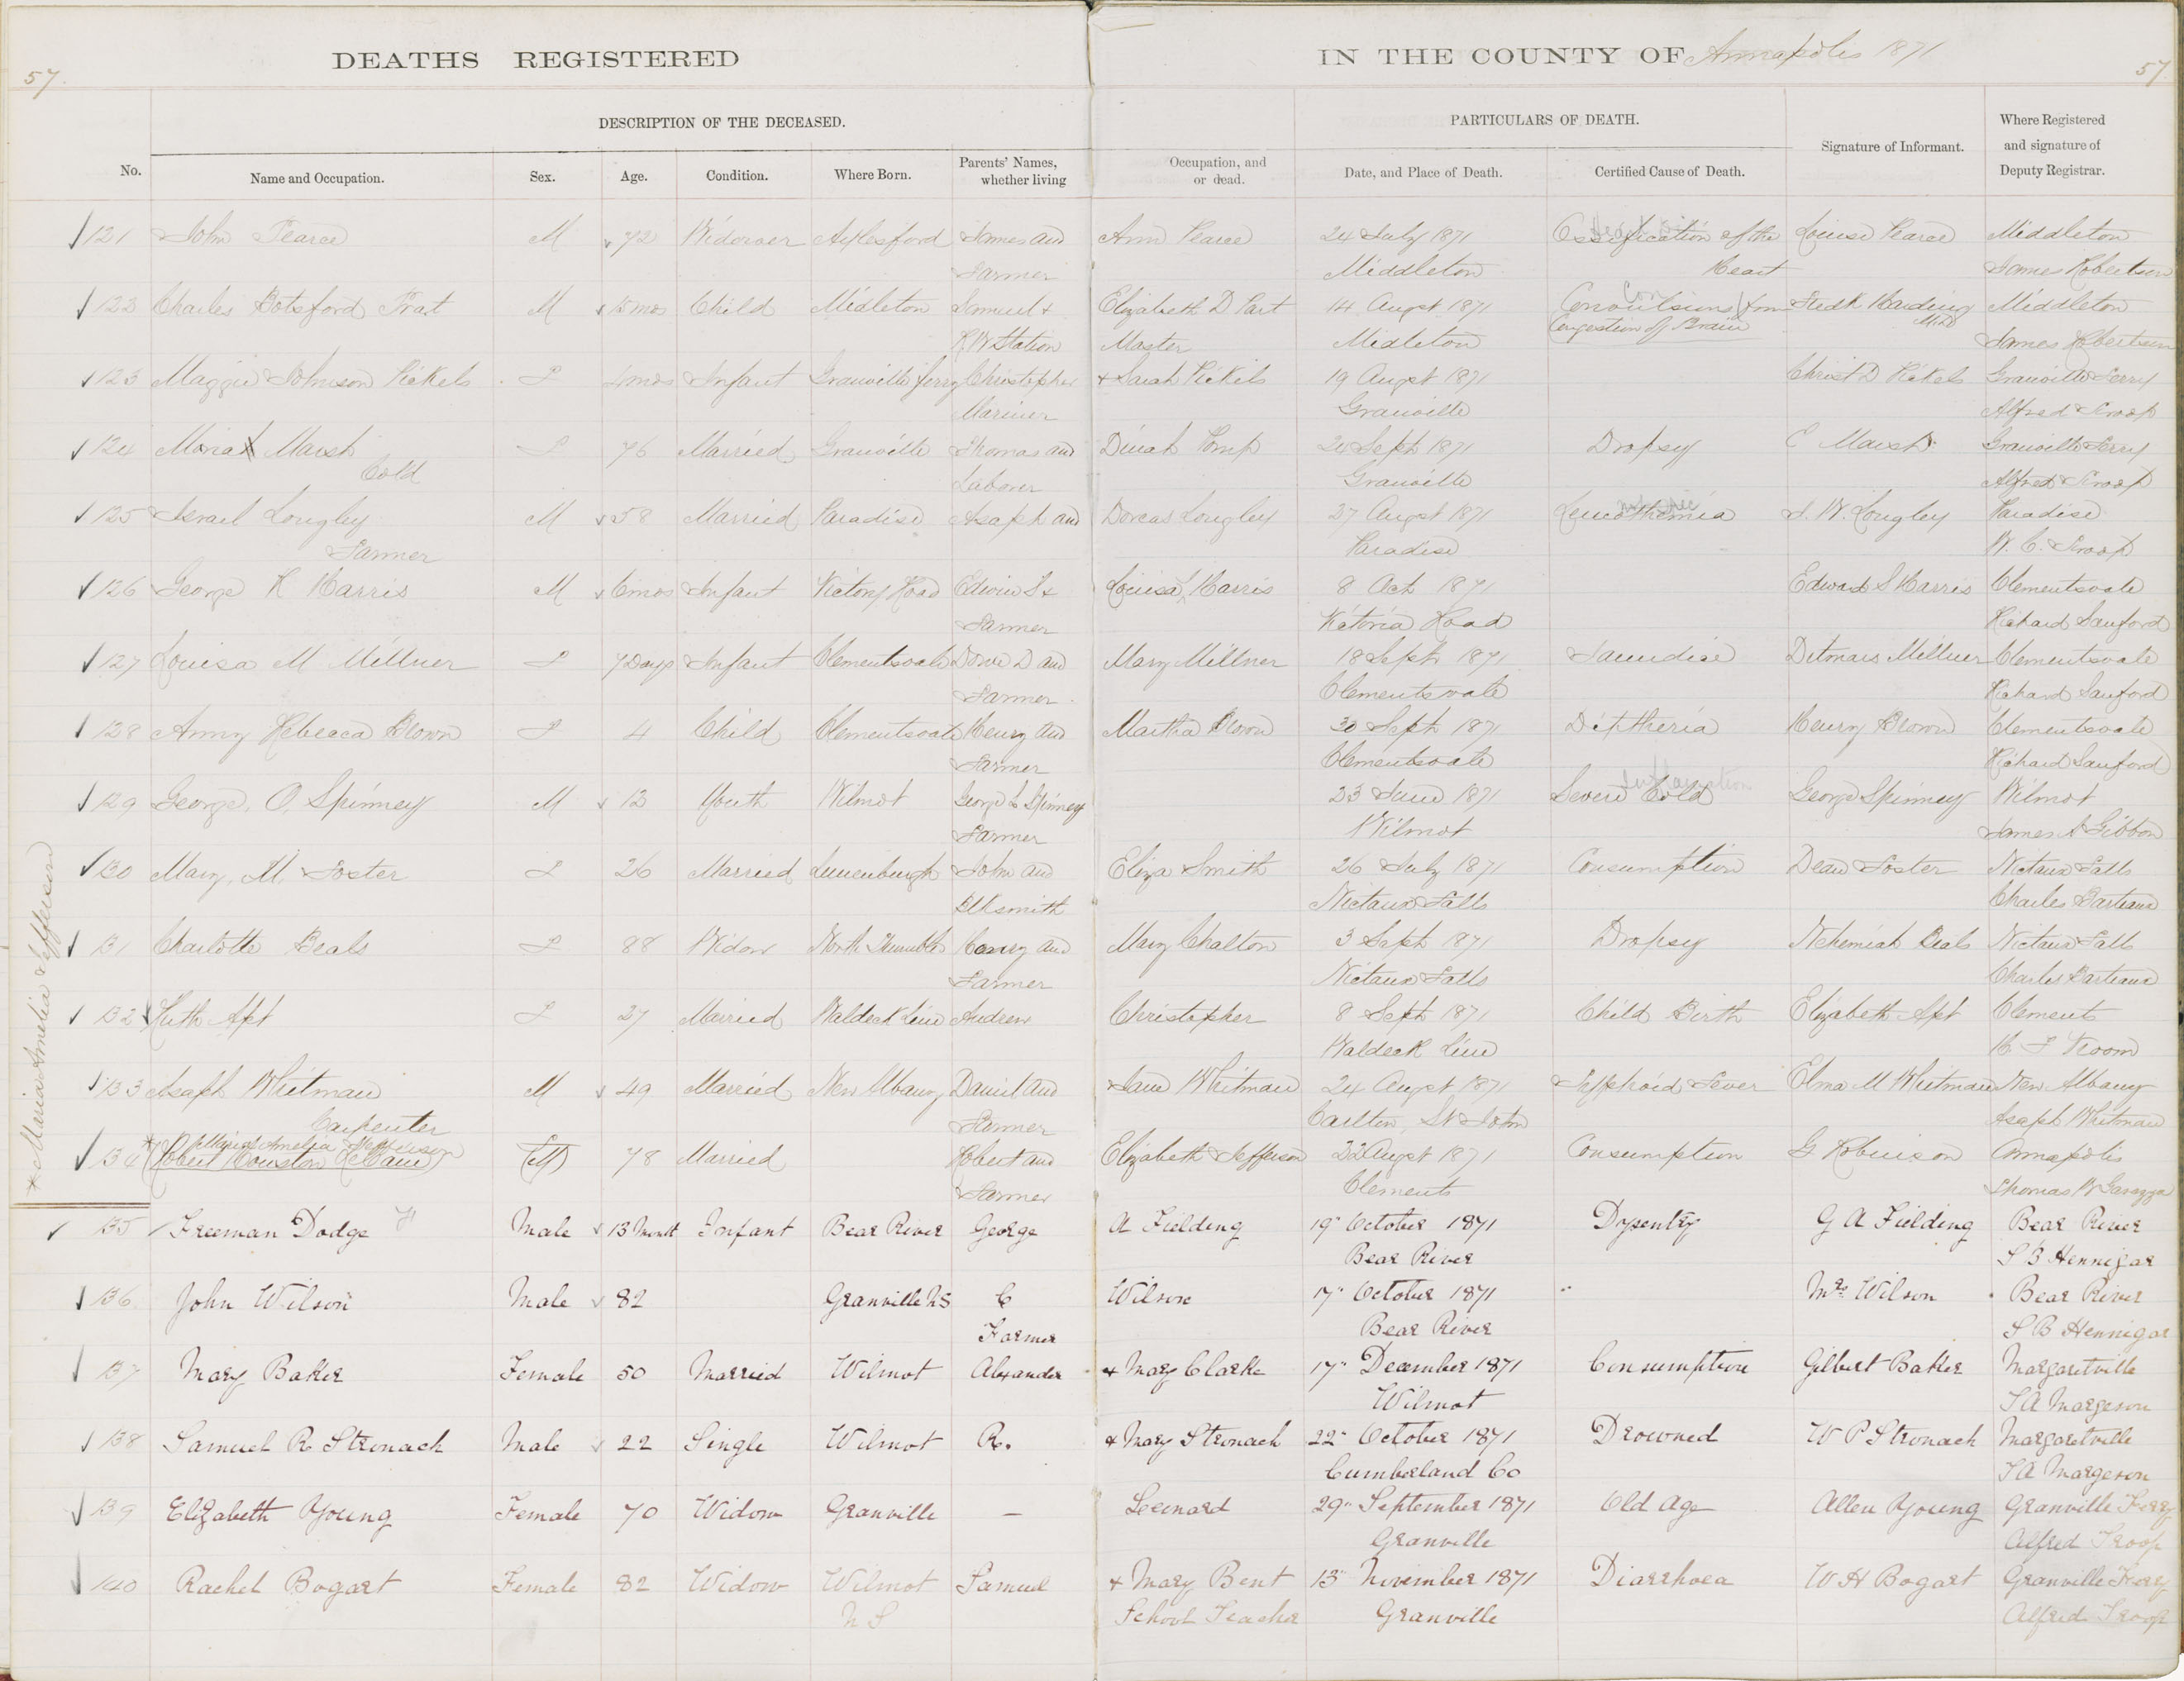 DEATHS REGISTERED IN THE COUNTY OF Annapolis 1871
57. 57
DESCRIPTION OF THE DECEASED. PARTICULARS OF DEATH. Where Registered and signature of Deputy Registrar.
No. Name and Occupation. Sex. Age. Condition. Where Born. Parents' Names, whether living Occupation, and or dead. Date, and Place of Death. Certified Cause of Death. Signature of Informant.
121 John Pearce M 72 Widower Aylesford James and Ann Pearce 24 July 1871 Ossification of the Louise Pearce Middleton
Farmer Middleton Heart James Robertson
122 Charles Botsford Prat M mos Child Midleton Samuel & Elizabeth D Part 14 Augst 1871 Convulsions from Fredk Harding Middleton
R W Station Master Midleton Congestion of Brain M.D James Robertson
123 Maggie Johnson Pickels F mos Infant Granville ferry Christopher & Sarah Pickels 19 Augst 1871 Christ D Pickels Granville Ferry
Mariner Granville Alfred Troop
124 Moriah Marsh F 76 Married Granville Thomas and Dinah Pomp 24 Sept 1871 Dropsy C Marsh Granville Ferry
Cold Laborer Granville Alfred Troop
125 Israel Longley M 58 Married Paradise Asaph and Dorcas Longley 27 Augst 1871 Leucothemia J. W. Longley Paradise
Farmer Paradise W. C. Troop
126 George H Harris M 6 mos Infant Victory Road Edwin S & Louisa Harris 8 Oct 1871 Edward S Harris Clementsvale
Farmer Victoria Road Richard Sanford
127 Louisa M Millner F 7 Days Infant Clementsvale D and Mary Millner 18 Sept 1871 Jaundise Ditmars Millner Clementsvale
Farmer Clementsvale Richard Sanford
128 Anny Rebecca Brown F 4 Child Clementsvale Henry and Martha Brown 30 Sept 1871 Diptheria Henry Brown Clementsvale
Farmer Clementsvale Richard Sanford
129 George. O. Spinney M 12 Youth Wilmot George L Spinney 23 June 1871 Severe Cold George Spinney Wilmot
Farmer Wilmot James A Gibbon
130 Mary. M. Foster F 26 Married Lunenburgh John and Eliza Smith 26 July 1871 Consumption Dean Foster Nictaux Falls
Blksmith Nictaux Falls Charles Barteaux
131 Charlotte Beals F 88 Widow North Humbld Henry and Mary Chalton 3 Sept 1871 Dropsy Nehemiah Beals Nictaux Falls
Farmer Nictaux Falls Charles Barteaux
132 Ruth Apt F 27 Married Waldeck Line Andrew Christopher 8 Sept 1871 Child Birth Elizabeth Apt Clements
Waldeck Line
133 Asaph Whitman M 49 Married New Albany Daniel and Jane Whitman 24 Augst 1871 Typhoid Fever Elma M Whitman New Albany
Carpenter Farmer Carlton, St John Asaph Whitman
* Maria Amelia Jefferson
134 (Robert Houston McCann) (M) 78 Married Robert and Elizabeth Jefferson 22 Augst 1871 Consumption G Robinson Annapolis
Farmer Clements Thomas W
* Maria Amelia Jefferson
135 Freeman Dodge F Male 13 Month Infant Bear River George A Fielding 19" October 1871 Dysentry G A Fielding Bear River
Bear River S B Hennigar
136 John Wilson Male 82 Granville NS C Wilson 17" October 1871 " Mrs Wilson Bear River
Farmer Bear River S B Hennigar
137 Mary Baker Female 50 Married Wilmot Alexander & Mary Clarke 17" December 1871 Consumption Gilbert Baker Margaretville
Wilmot T A Margeson
138 Samuel R Stronach Male 22 Single Wilmot R. & Mary Stronach 22" October 1871 Drowned W P Stronach Margaretville
Cumberland Co T A Margeson
139 Elizabeth Young Female 70 Widow Granville — Leonard 29" September 1871 Old Age Allen Young Granville Ferry
Granville Alfred Troop
140 Rachel Bogart Female 82 Widow Wilmot Samuel & Mary Bent 13" November 1871 Diarrhoea W H Bogart Granville Ferry
N S School Teacher Granville Alfred Troop